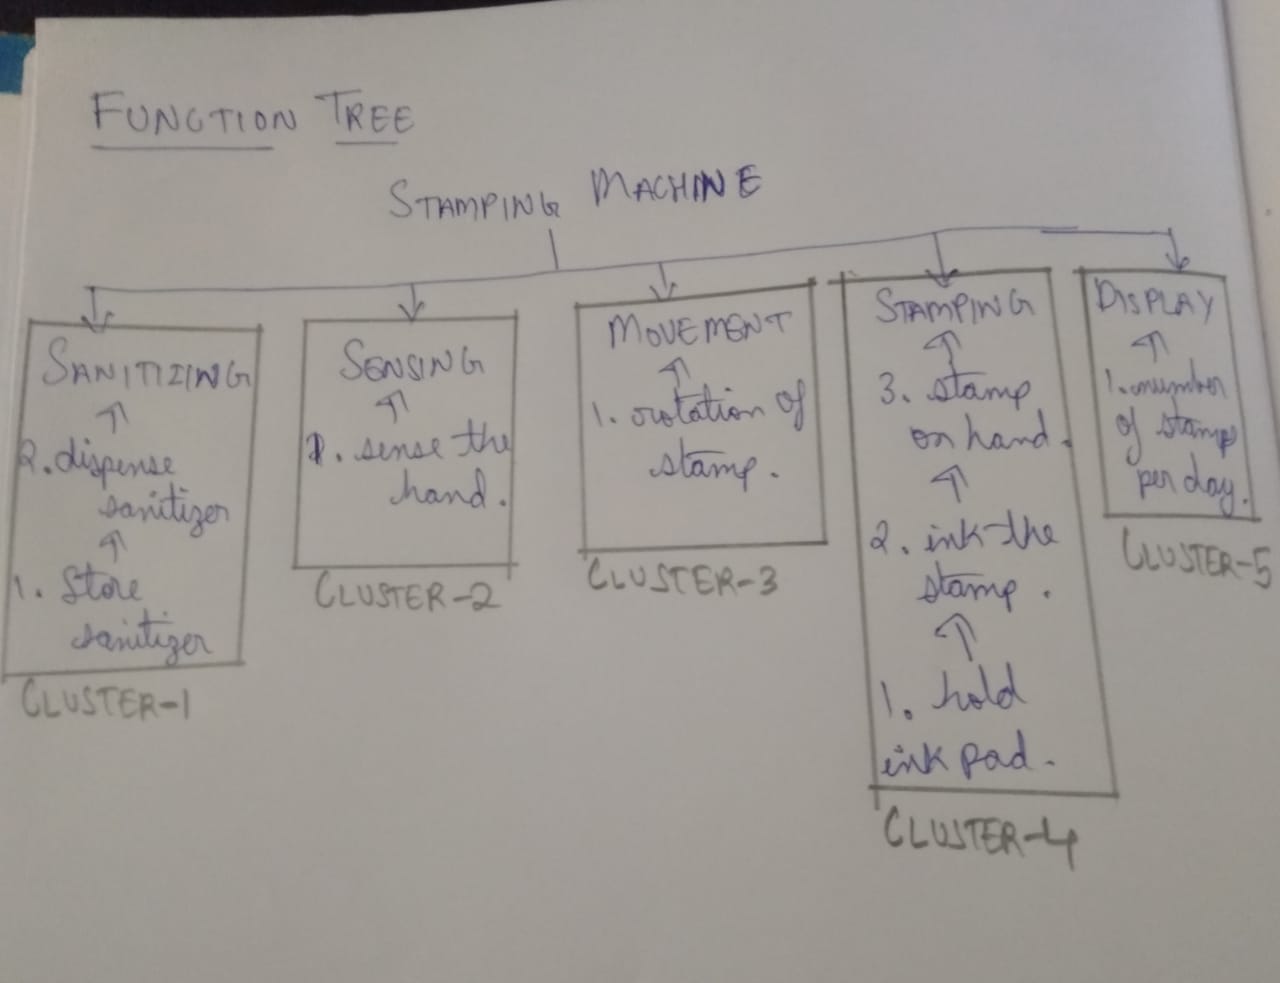 FUNCTION TREE
STAMPING MACHINE
SANITIZING
2. dispense
sanitizer
1. Store
sanitizer
CLUSTER-1
SENSING
1. sense the
hand.
CLUSTER-2
MOVEMENT
1. rotation of
stamp.
CLUSTER-3
STAMPING
3. stamp
on hand.
2. ink the
stamp.
1. hold
ink pad.
CLUSTER-4
DISPLAY
1. number
of stamps
per day.
CLUSTER-5